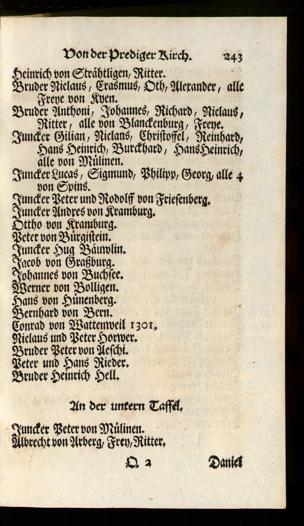 Von der Prediger Kirch. 243
Heinrich von Strähtligen, Ritter.
Bruder Niclaus, Erasmus, Oth, Alexander, alle
Freye von Kyen.
Bruder Anthoni, Johannes, Richard, Niclaus,
Ritter, alle von Blanckenburg, Freye.
Juncker Gilian, Niclaus, Christoffel, Reinhard,
Hans Heinrich, Burckhard, Hans Heinrich,
alle von Mülinen.
Juncker Lucas, Sigmund, Philipp, Georg, alle 4
von Spins.
Juncker Peter und Rodolff von Friesenberg.
Juncker Andres von Kramburg.
Ottho von Kramburg.
Peter von Bürgistein.
Juncker Hug Bäuwlin.
Jacob von Graßburg.
Johannes von Buchsee.
Werner von Bolligen.
Hans von Hünenberg.
Bernhard von Bern.
Conrad von Wattenweil 1301.
Niclaus und Peter Horwer.
Bruder Peter von Aeschi.
Peter und Hans Rieder.
Bruder Heinrich Hell.
An der untern Taffel.
Juncker Peter von Mülinen.
Albrecht von Arberg, Frey, Ritter.
Q 2 Daniel